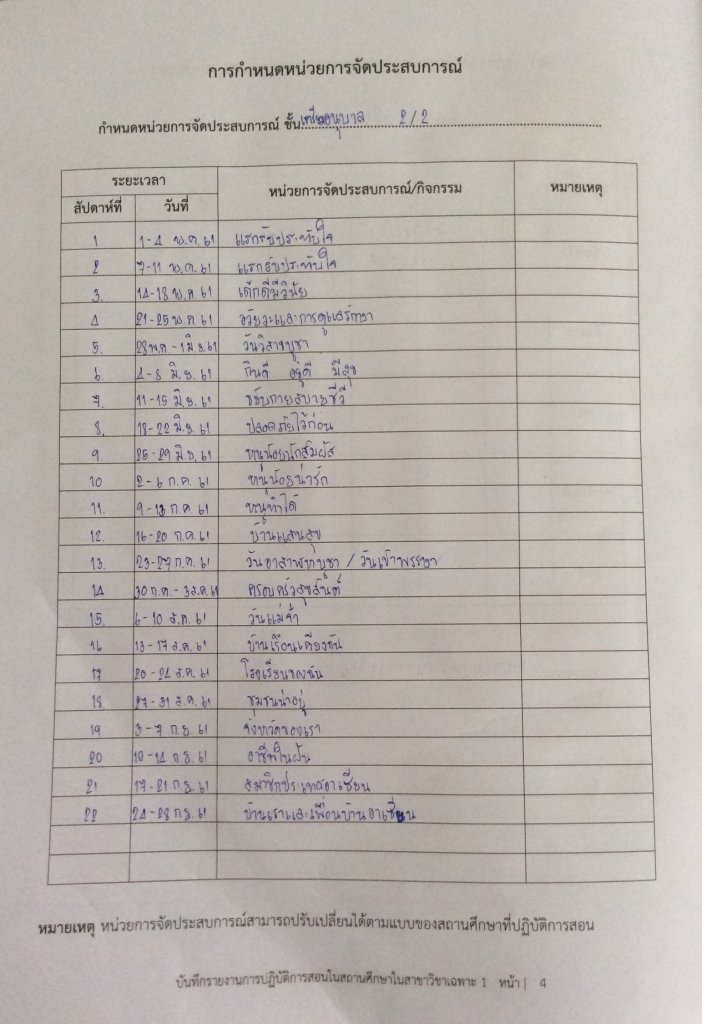 การกำหนดหน่วยการจัดประสบการณ์
กำหนดหน่วยการจัดประสบการณ์ ชั้น อนุบาล 2/2
ระยะเวลา หน่วยการจัดประสบการณ์/กิจกรรม หมายเหตุ
สัปดาห์ที่ วันที่
1 1-4 พ.ค. 61 แรกรับประทับใจ
2 7-11 พ.ค. 61 แรกรับประทับใจ
3. 14-18 พ.ค 61 เด็กดีมีวินัย
4 21-25 พ.ค 61 อวัยวะและการดูแลรักษา
5. 28 พ.ค. - 1 มิ.ย. 61 วันวิสาขบูชา
6 4-8 มิ.ย. 61 กินดี อยู่ดี มีสุข
7. 11-15 มิ.ย. 61 ขยับกายสบายชีวี
8. 18-22 มิ.ย. 61 ปลอดภัยไว้ก่อน
9. 25-29 มิ.ย. 61 หนูน้อยนักสัมผัส
10 2-6 ก.ค. 61 หนูน้อยน่ารัก
11. 9-13 ก.ค 61 หนูทำได้
12. 16-20 ก.ค 61 บ้านแสนสุข
13. 23-27 ก.ค. 61 วันอาสาฬหบูชา / วันเข้าพรรษา
14 30 ก.ค. - 3 ส.ค. 61 ครอบครัวสุขสันต์
15. 6-10 ส.ค. 61 วันแม่จ๋า
16 13-17 ส.ค. 61 บ้านเรือนเคียงกัน
17 20-24 ส.ค. 61 โรงเรียนของฉัน
18 27-31 ส.ค. 61 ชุมชนน่าอยู่
19 3-7 ก.ย. 61 จังหวัดของเรา
20 10-14 ก.ย. 61 อาชีพในฝัน
21 17-21 ก.ย. 61 สมาชิกประเทศอาเซียน
22 24-28 ก.ย. 61 บ้านเราและเพื่อนบ้านอาเซียน
หมายเหตุ หน่วยการจัดประสบการณ์สามารถปรับเปลี่ยนได้ตามแบบของสถานศึกษาที่ปฏิบัติการสอน
บันทึกรายงานการปฏิบัติการสอนในสถานศึกษาในสาขาวิชาเฉพาะ 1 หน้า | 4